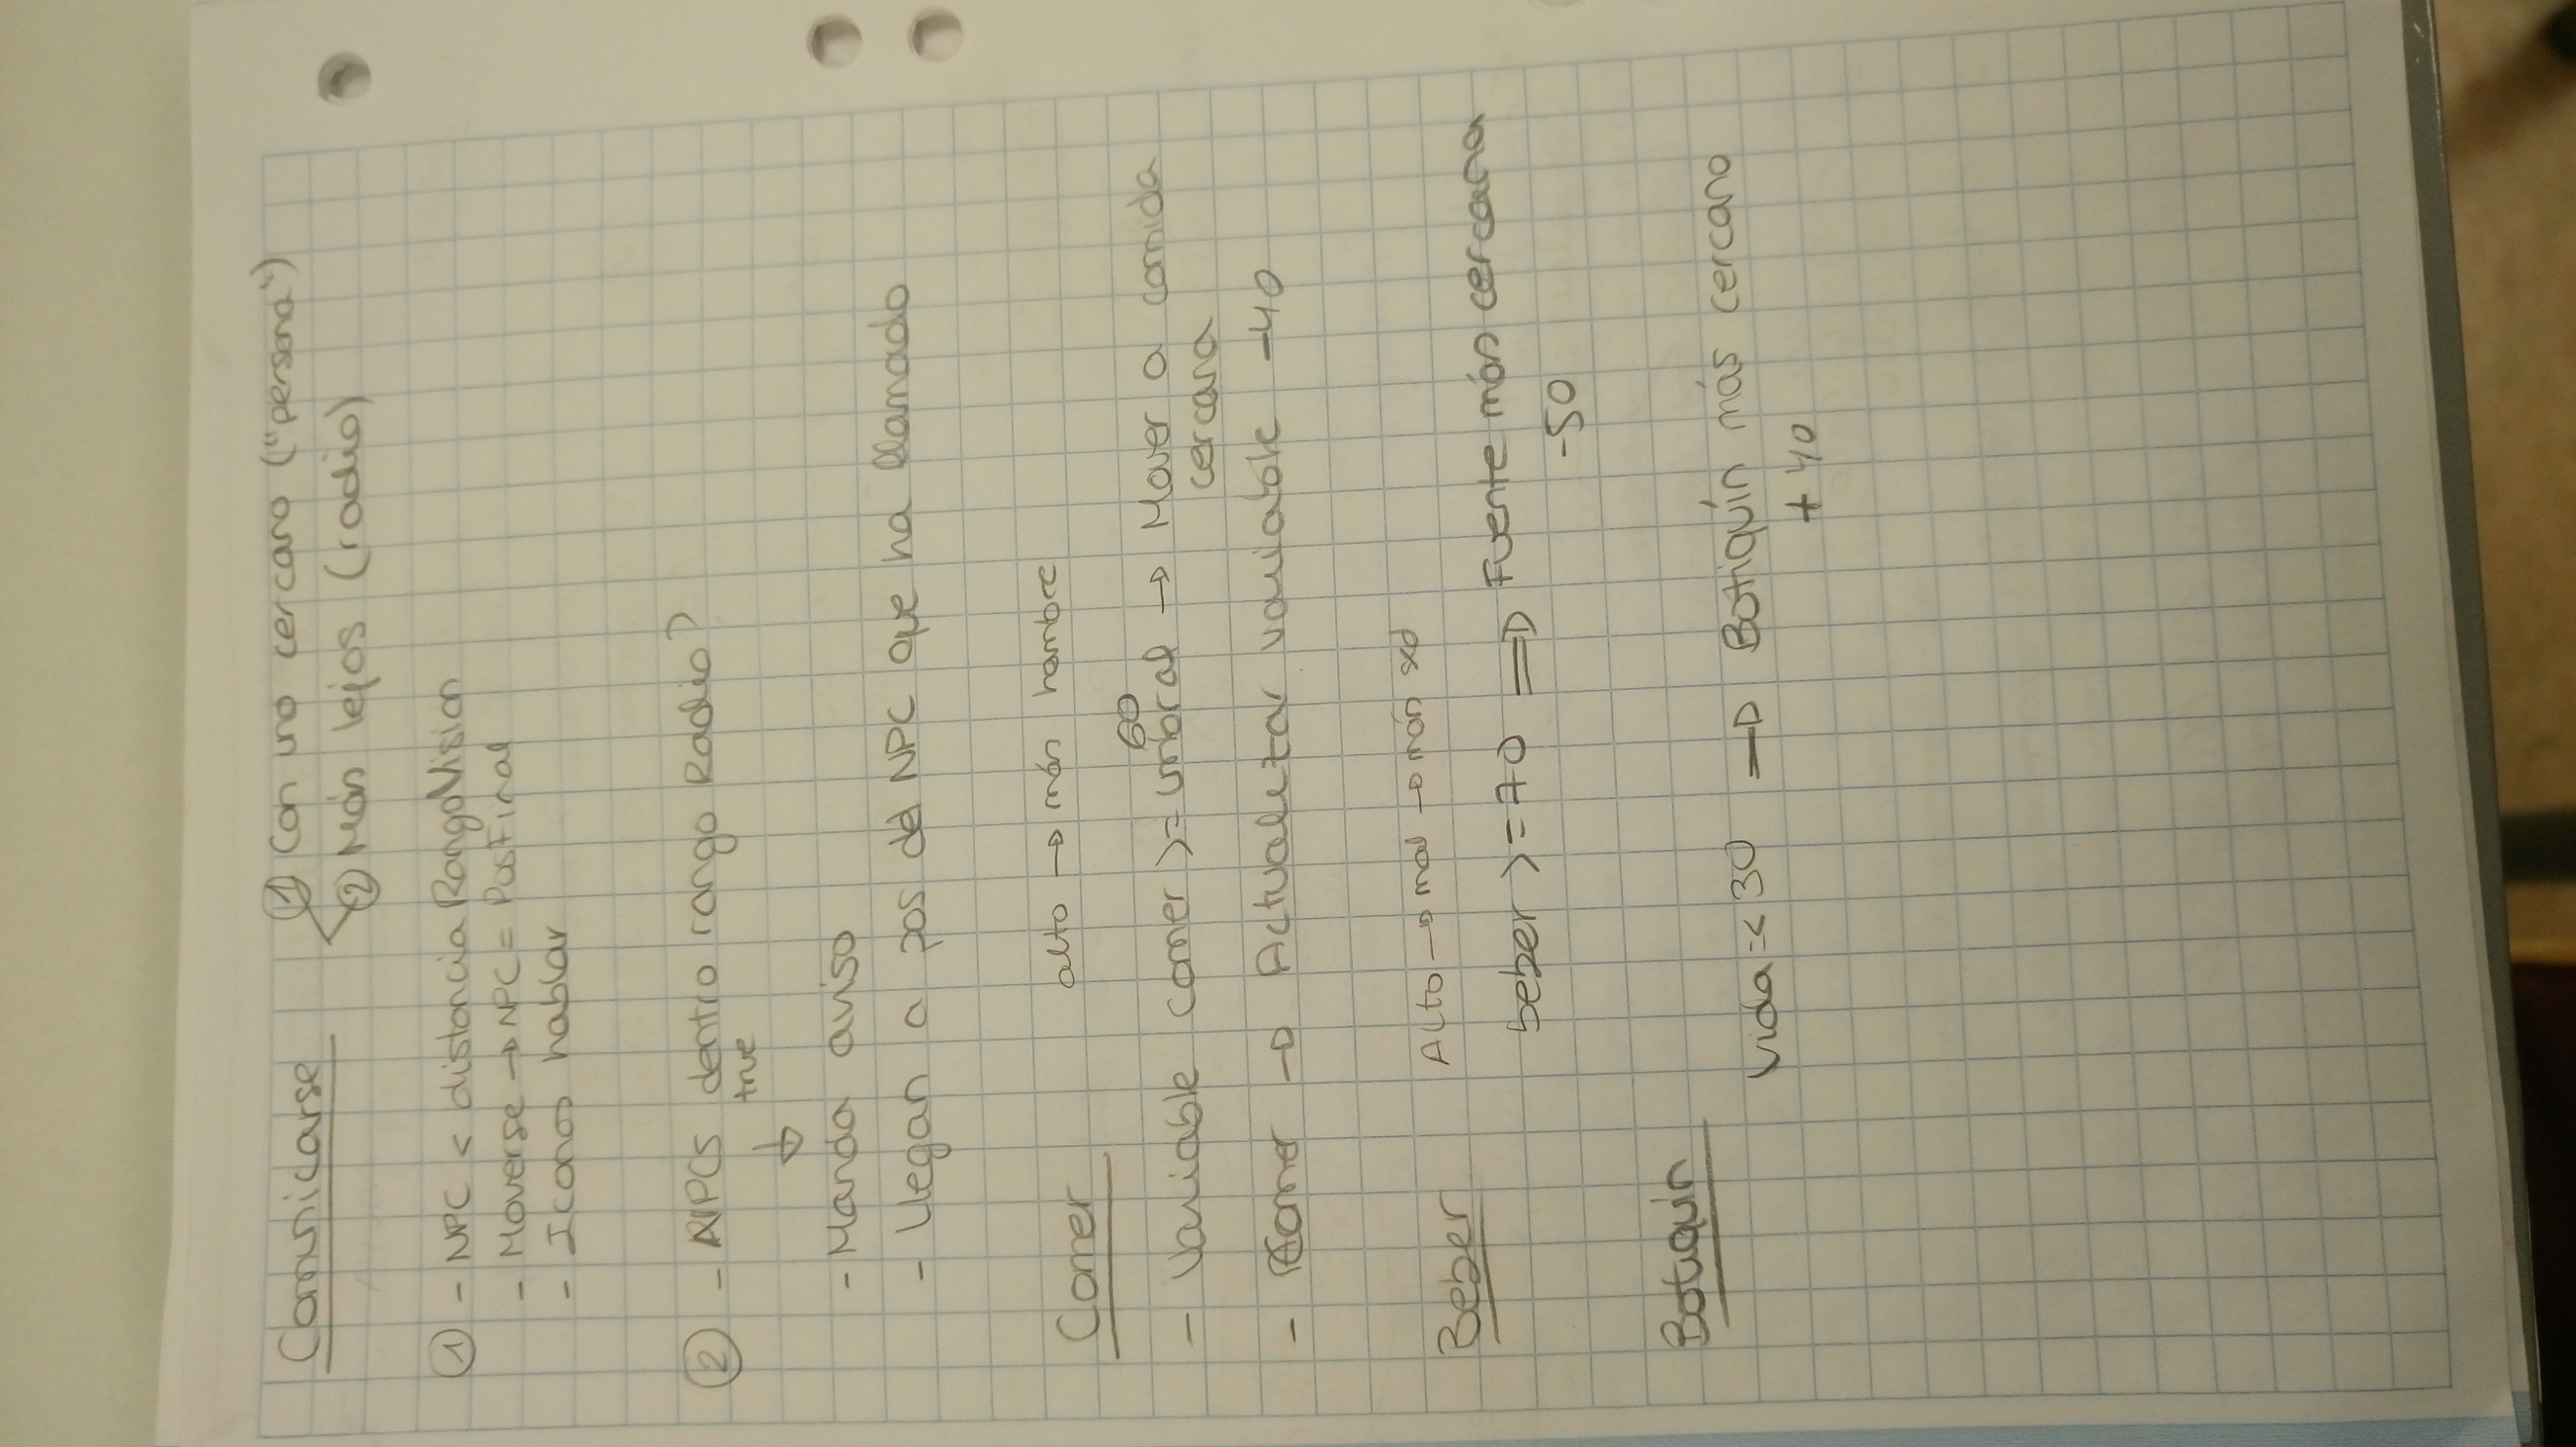 Comunicarse
① Con uno cercano ("persona")
② Más lejos (radio)
① - NPC < distancia RangoVision
- Moverse → NPC = PosFinal
- Iconos hablar
② - NPCs dentro rango Radio?
true
↓
- Manda aviso
- Llegan a pos del NPC que ha llamado
Comer
alto → más hambre
60
- Variable comer >= umbral → Mover a comida
cercana
- Comer → Actualizar variable -40
Beber
Alto → mal → más sed
beber >= 70 ⇒ Fuente más cercana
-50
Botiquín
vida =< 30 → Botiquín más cercano
+ 40